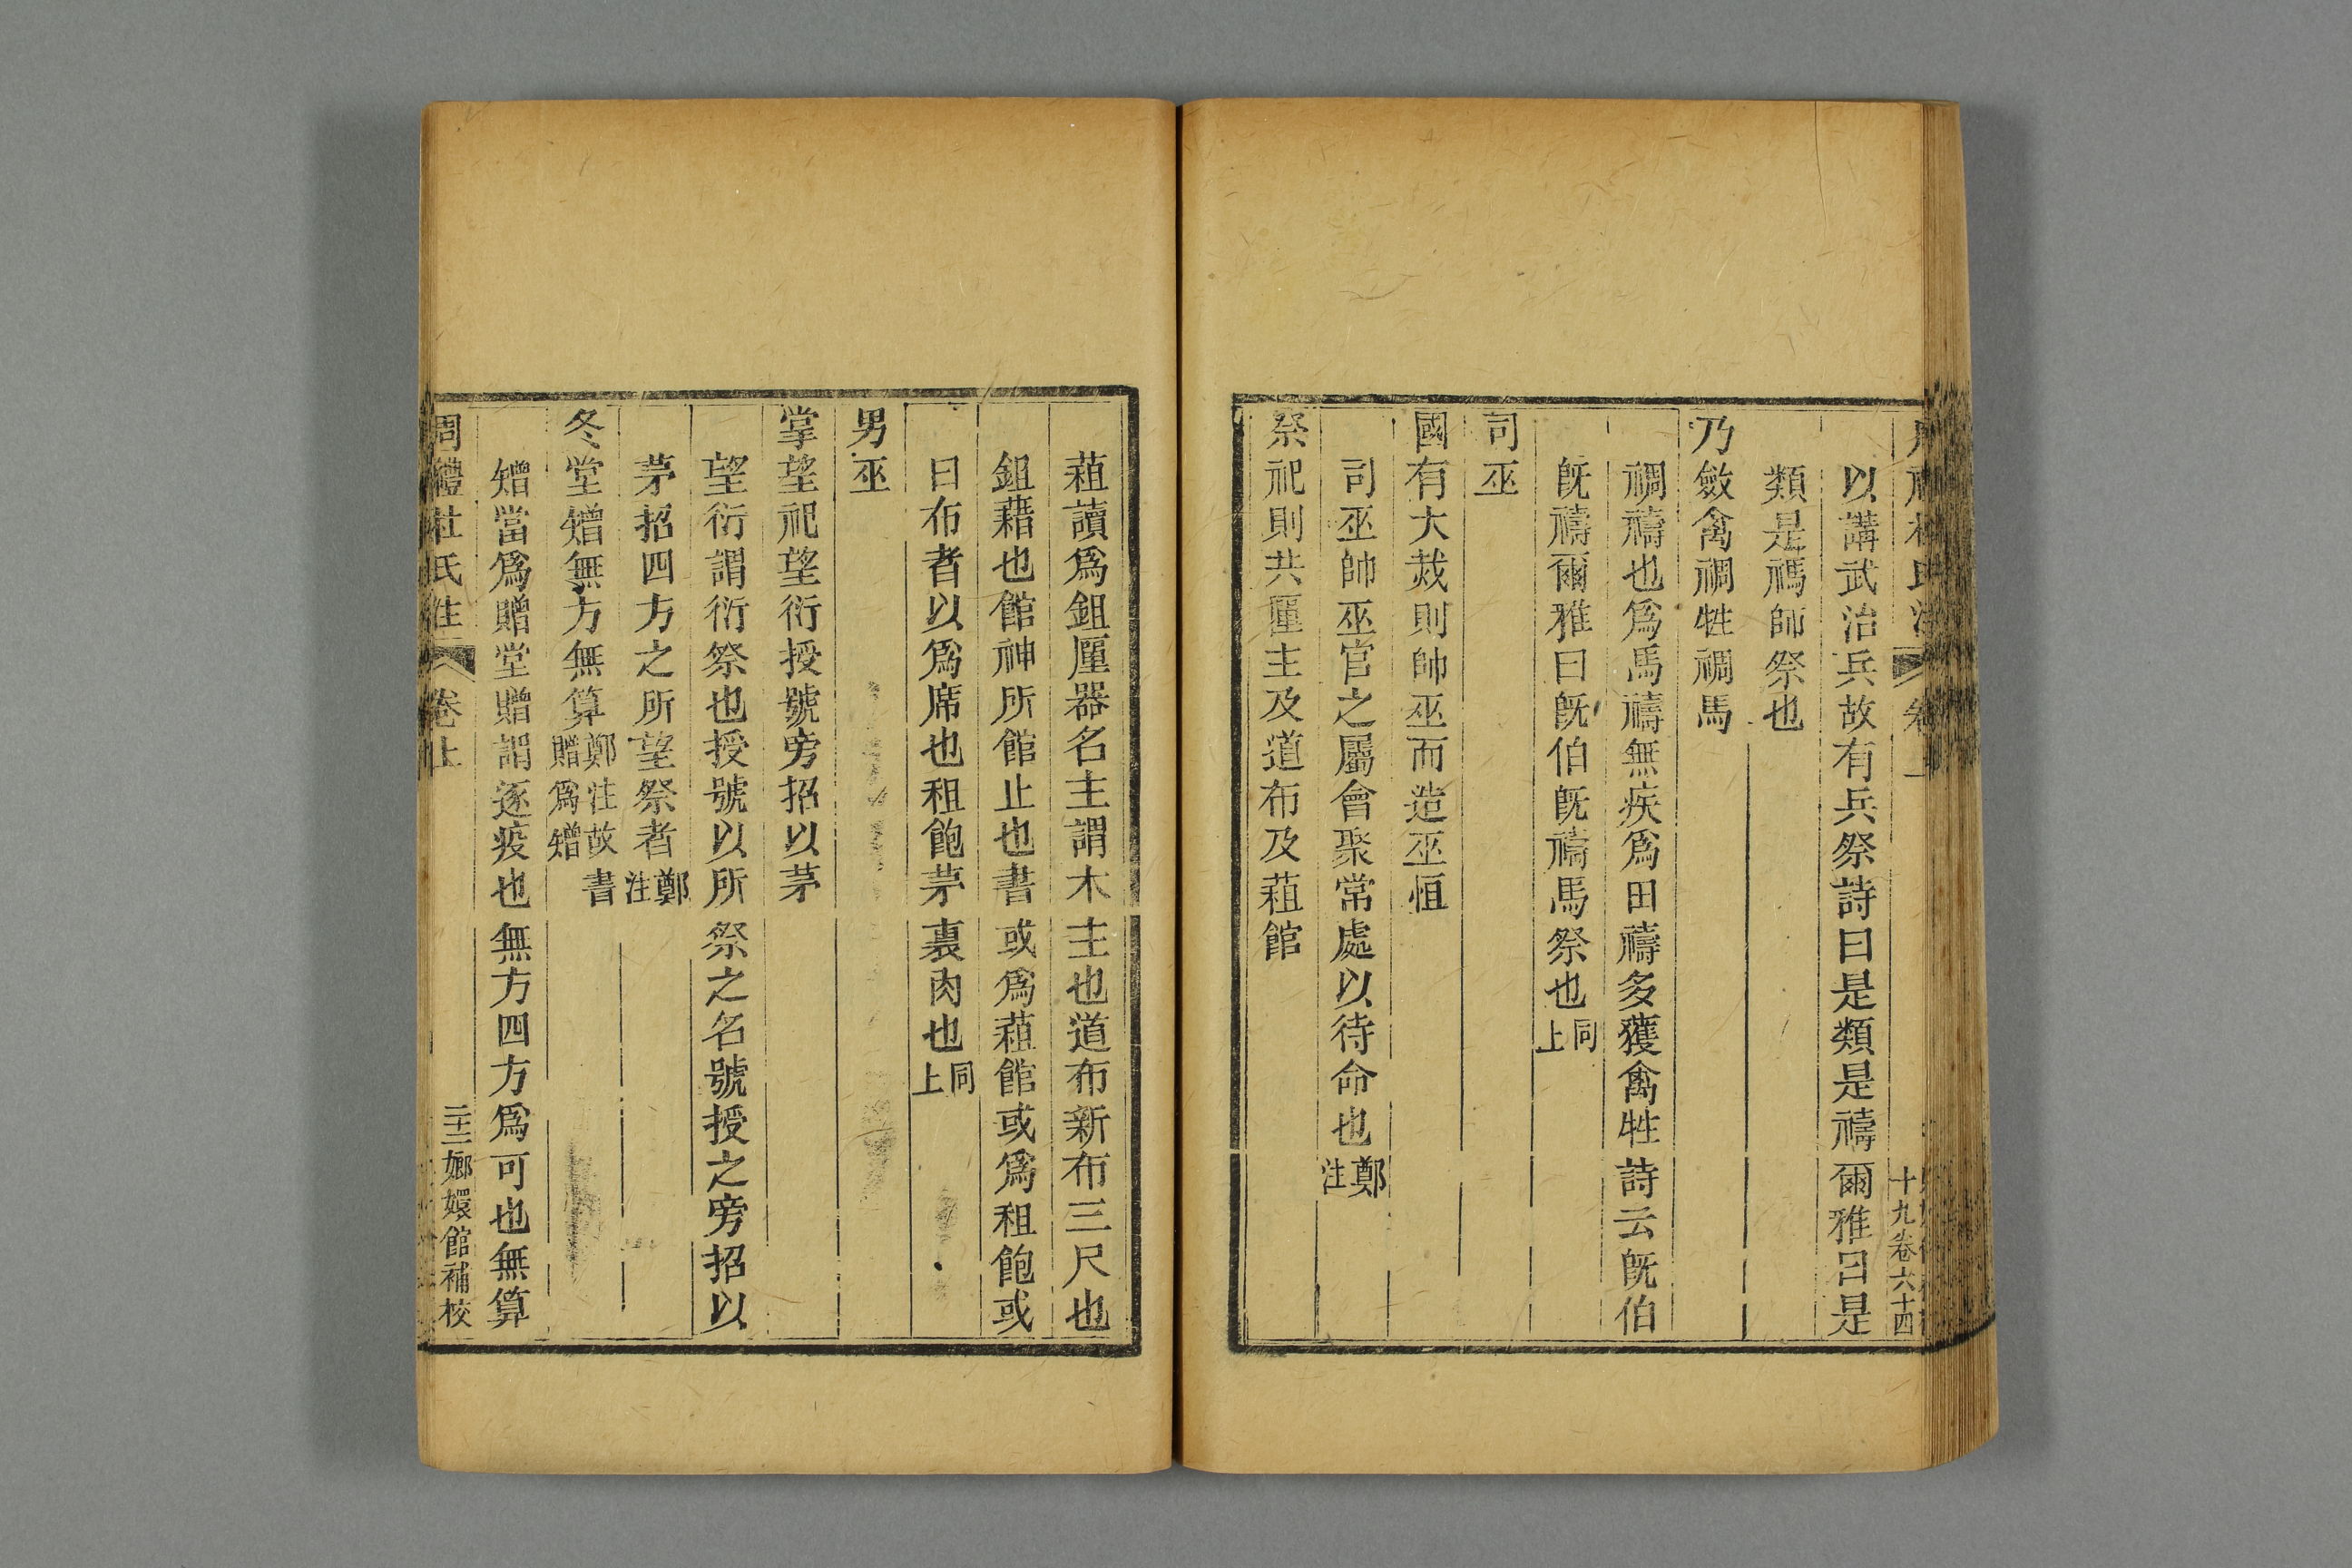 十九卷六十四
以講武治兵故有兵祭詩曰是類是禱爾雅曰是
類是禡師祭也
乃斂禽禂牲禂馬
禂禱也爲馬禱無疾爲田禱多獲禽牲詩云旣伯
旣禱爾雅曰旣伯旣禱馬祭也同上
司巫
國有大烖則帥巫而造巫恒
司巫帥巫官之屬會聚常處以待命也鄭注
祭祀則共匰主及道布及蒩館
蒩讀爲鉏匰器名主謂木主也道布新布三尺也
鉏藉也館神所館止也書或爲蒩館或爲租飽或
曰布者以爲席也租飽茅裹肉也同上
男巫
掌望祀望衍授號旁招以茅
望衍謂衍祭也授號以所祭之名號授之旁招以
茅招四方之所望祭者鄭注
冬堂矰無方無算鄭注故書贈爲矰
矰當爲贈堂贈謂逐疫也無方四方爲可也無算
周禮杜氏注 卷上 二十二 嫏嬛館補校